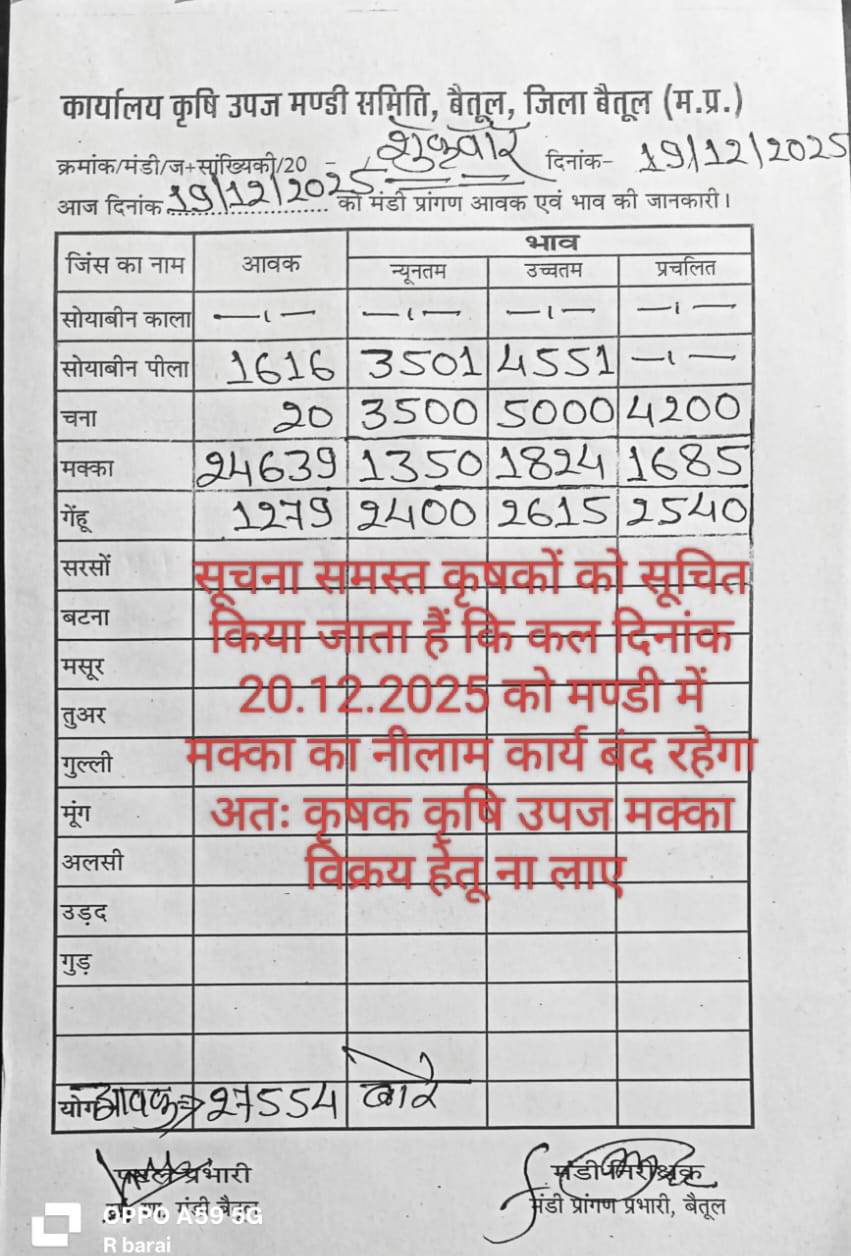 कार्यालय कृषि उपज मण्डी समिति, बैतूल, जिला बैतूल (म.प्र.)
क्रमांक/मंडी/ज+सांख्यिकी/20 - / शुक्रवार दिनांक- 19/12/2025
आज दिनांक 19/12/2025 को मंडी प्रांगण आवक एवं भाव की जानकारी।
जिंस का नाम आवक भाव
न्यूनतम उच्चतम प्रचलित
सोयाबीन काला —ı— —ı— —ı— —ı—
सोयाबीन पीला 1616 3501 4551 —ı—
चना 20 3500 5000 4200
मक्का 24639 1350 1824 1685
गेंहू 1279 2400 2615 2540
सरसों
सूचना समस्त कृषकों को सूचित
बटना
किया जाता हैं कि कल दिनांक
मसूर
20.12.2025 को मण्डी में
तुअर
मक्का का नीलाम कार्य बंद रहेगा
गुल्ली
मूंग
अतः कृषक कृषि उपज मक्का
अलसी
विक्रय हेतू ना लाए
उड़द
गुड़
योग आवक→ 27554 बोरे
प्रभारी मंडी निरीक्षक
मंडी बैतूल मंडी प्रांगण प्रभारी, बैतूल
OPPO A59 5G
R barai